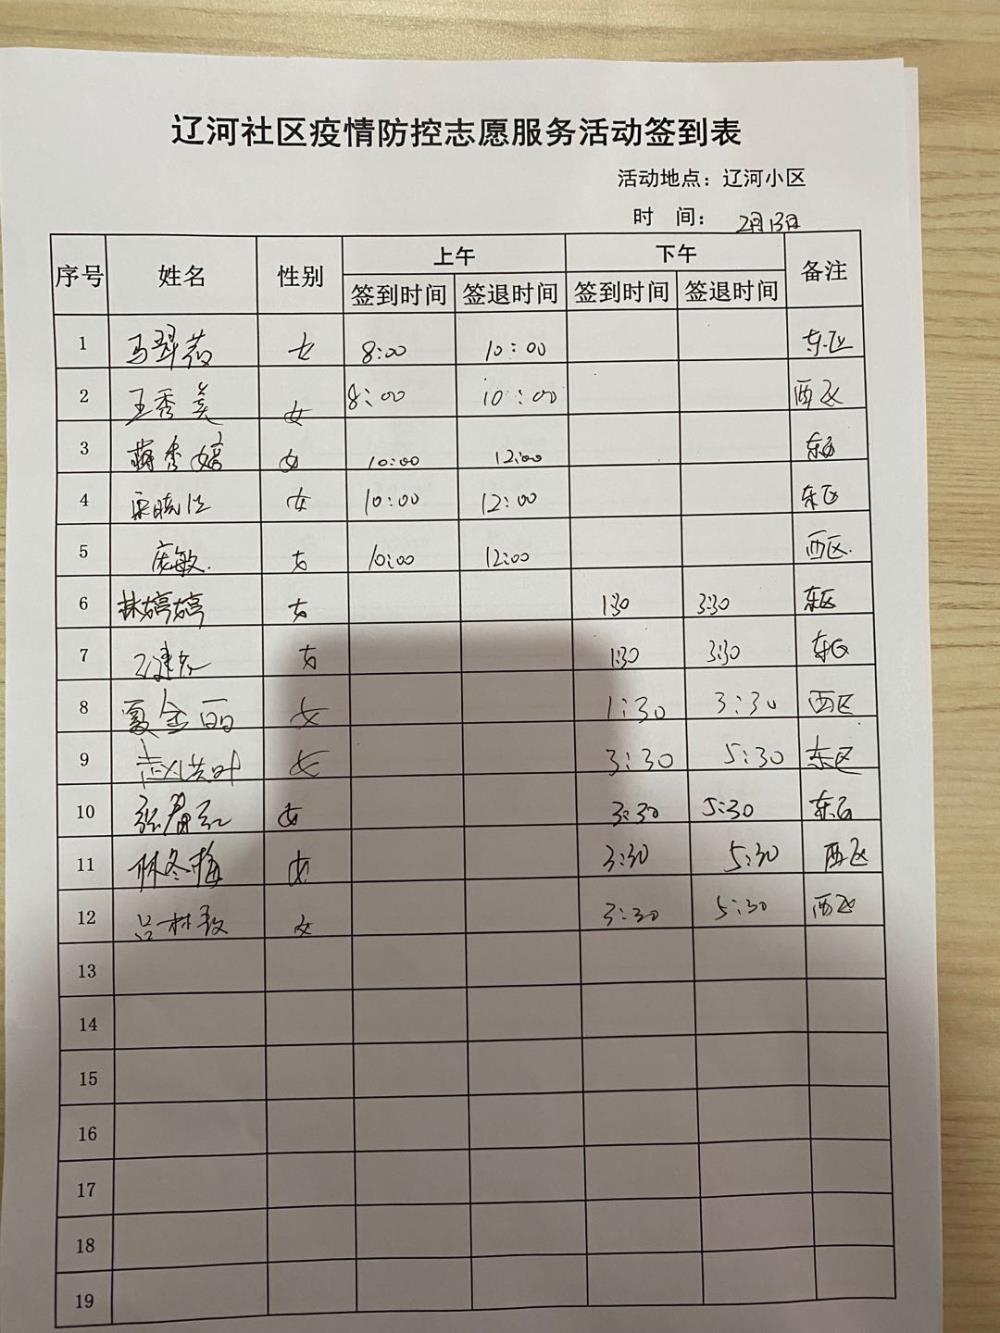 辽河社区疫情防控志愿服务活动签到表
活动地点：辽河小区
时 间： 2月13日
序号 姓名 性别 上午 下午 备注
签到时间 签退时间 签到时间 签退时间
1 马翠 女 8:00 10:00 东区
2 王秀美 女 8:00 10:00 西区
3 蒋秀婷 女 10:00 12:00 东区
4 晓 女 10:00 12:00 东区
5 庞敏 女 10:00 12:00 西区.
6 林婷婷 女 1:30 3:30 东区
7 女 1:30 3:30 东区
8 夏金丽 女 1:30 3:30 西区
9 赵洪叶 女 3:30 5:30 东区
10 张春红 女 3:30 5:30 东区
11 林冬梅 女 3:30 5:30 西区
12 吕林 女 3:30 5:30 西区
13
14
15
16
17
18
19